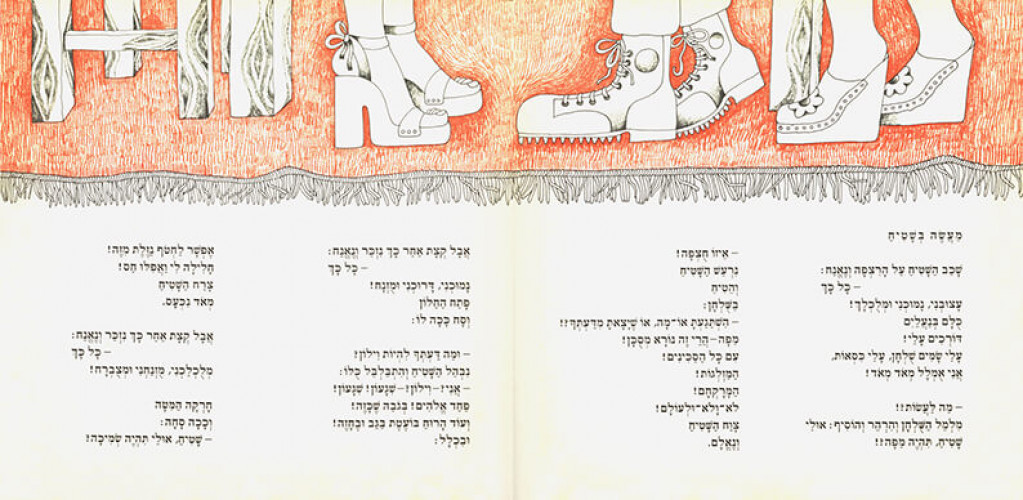 מַעֲשֶׂה בְּשָׁטִיחַ
שָׁכַב הַשָּׁטִיחַ עַל הָרִצְפָּה וְנֶאֱנַח:
– כָּל כָּךְ
עֲצוּבַנִי, נְמוּכַנִי וּמְלֻכְלָךְ!
כֻּלָּם בְּנַעֲלַיִם
דּוֹרְכִים עָלַי!
עָלַי שָׂמִים שֻׁלְחָן, עָלַי כִּסְאוֹת,
אֲנִי אֻמְלָל מְאֹד מְאֹד!
– מַה לַּעֲשׂוֹת?!
מִלְמֵל הַשֻּׁלְחָן וְהִרְהֵר וְהוֹסִיף: אוּלַי
שָׁטִיחַ, תִּהְיֶה מַפָּה?!
– אֵיזוֹ חֻצְפָּה!
נִרְעַשׁ הַשָּׁטִיחַ
וְהֵטִיחַ
בַּשֻּׁלְחָן:
– הִשְׁתַּגַּעְתָּ אוֹ־מָה, אוֹ שֶׁיָּצָאתָ מִדַּעְתְּךָ?!
מַפָּה–הֲרֵי זֶה נוֹרָא מְסֻכָּן!
עִם כָּל הַסַּכִּינִים!
הַמַּזְלְגוֹת!
הַמָּרָקְחַם!
לֹא־וָלֹא־וּלְעוֹלָם!
צָוַח הַשָּׁטִיחַ
וְנֶאֱלַם.
אֲבָל קְצָת אַחַר כָּךְ נִזְכַּר וְנֶאֱנַח:
– כָּל כָּךְ
נְמוּכַנִי, דְּרוּכַנִי וּמֻזְנָח!
פָּתַח הַחַלּוֹן
וְסָח כָּכָה לוֹ:
– וּמַה דַּעְתְּךָ לִהְיוֹת וִילוֹן?
נִבְהַל הַשָּׁטִיחַ וְהִתְבַּלְבֵּל כֻּלּוֹ:
– אֲנִי?–וִילוֹן?–שִׁגָּעוֹן! שִׁגָּעוֹן!
פַּחַד אֱלֹהִים! בַּגֹּבַהּ שֶׁכָּזֶה!
וְעוֹד הָרוּחַ בּוֹעֶטֶת בַּגַּב וּבֶחָזֶה!
וּבִכְלָל:
אֶפְשָׁר לַחְטֹף נַזֶּלֶת מִזֶּה!
חָלִילָה לִי וַאֲפִלּוּ חַס!
צָרַח הַשָּׁטִיחַ
מְאֹד נִכְעָס.
אֲבָל קְצָת אַחַר כָּךְ נִזְכַּר וְנֶאֱנַח:
– כָּל כָּךְ
מְלֻכְלְכַנִי, מֻזְנָחַנִי וּמְצֻבְרָח!
חָרְקָה הַמִּטָּה
וְכָכָה סָחָה:
– שָׁטִיחַ, אוּלַי תִּהְיֶה שְׂמִיכָה?